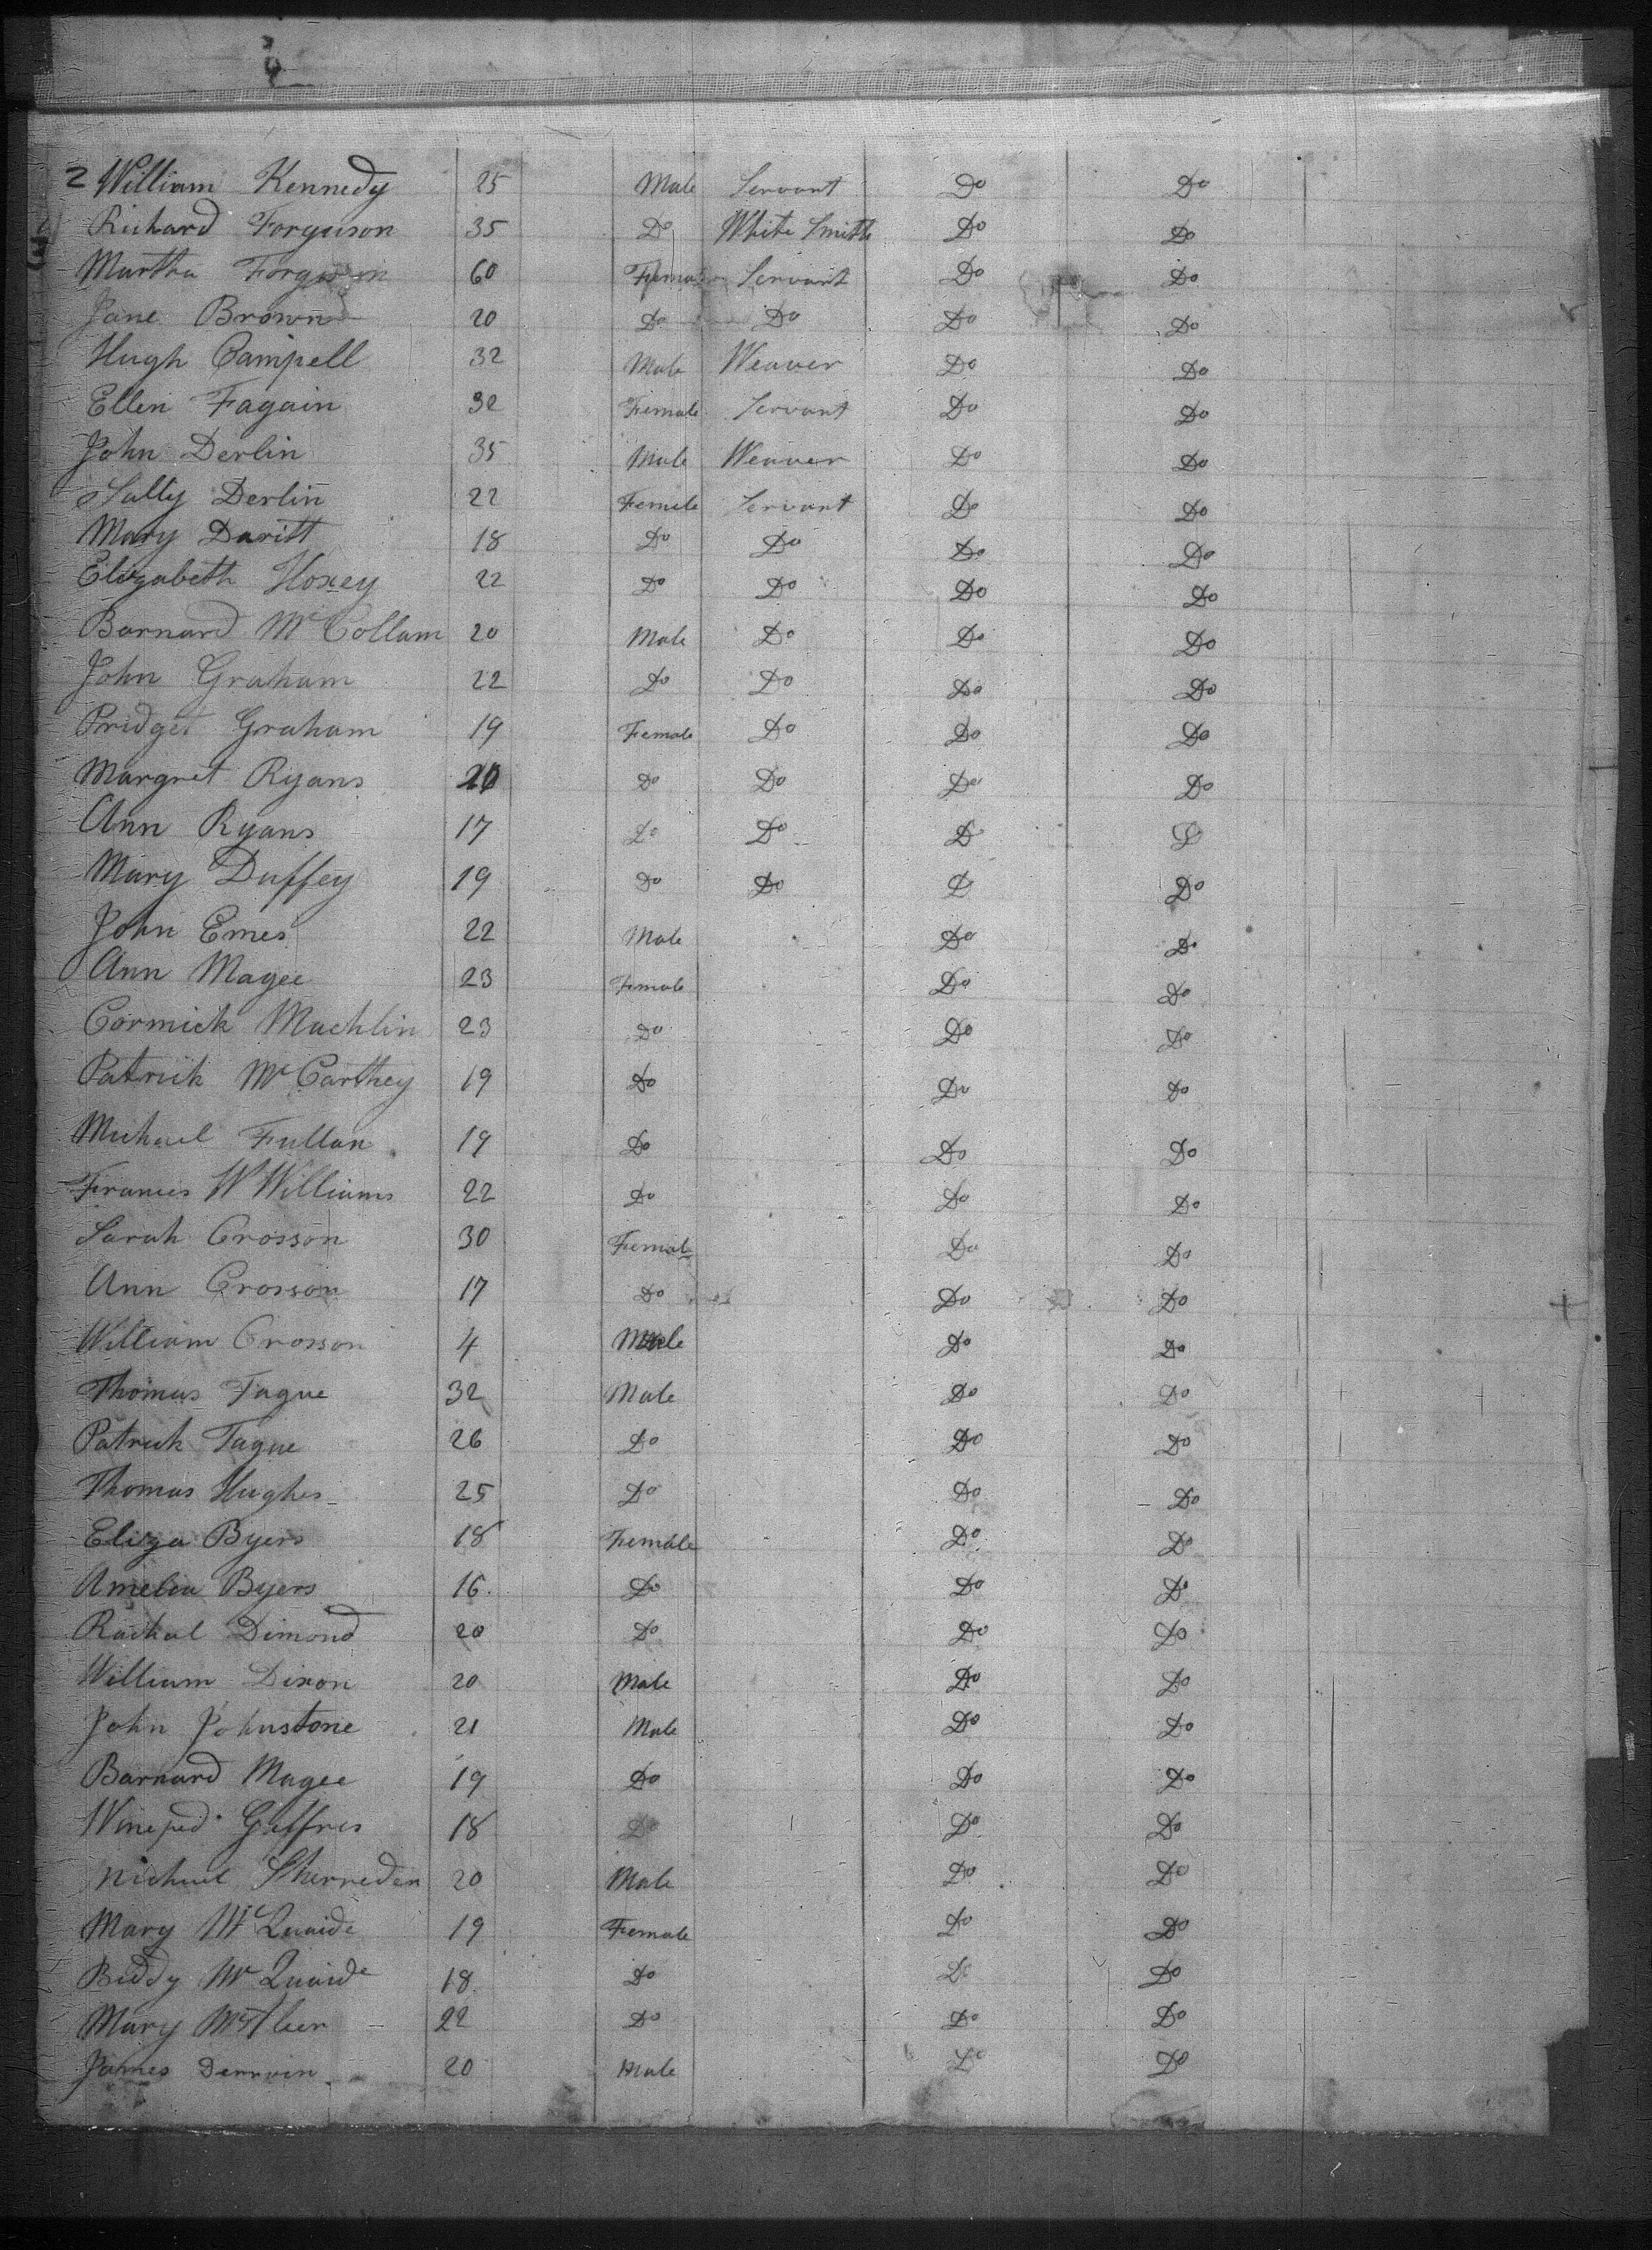 2 William Kennedy 25 Male Servant Do Do
Richard Forguson 35 Do White Smith Do Do
Martha Forguson 60 Female Servant Do Do
Jane Brown 20 Do Do Do Do
Hugh Campell 32 Male Weaver Do Do
Ellen Fagain 32 Female Servant Do Do
John Derlin 35 Male Weaver Do Do
Sally Derlin 22 Female Servant Do Do
Mary Daritt 18 Do Do Do Do
Elizabeth Hoxey 22 Do Do Do Do
Barnard McCollam 20 Male Do Do Do
John Graham 22 Do Do Do Do
Bridget Graham 19 Female Do Do Do
Margret Ryans Do Do Do Do
Ann Ryans 17 Do Do Do Do
Mary Duffey 19 Do Do Do Do
John Emes 22 Male Do Do
Ann Magee 23 Female Do Do
Cormick Machlin 23 Do Do Do
Patrick McCarthey 19 Do Do Do
Michael Fullan 19 Do Do Do
Frances W Williams 22 Do Do Do
Sarah Crosson 30 Female Do Do
Ann Crosson 17 Do Do Do
William Crosson 4 Male Do Do
Thomas Tague 32 Male Do Do
Patrick Tague 26 Do Do Do
Thomas Hughes 25 Do Do Do
Eliza Byers 18 Female Do Do
Amelia Byers 16 Do Do Do
Rachal Dimond 20 Do Do Do
William Dixon 20 Male Do Do
John Johnstone 21 Male Do Do
Barnard Magee 19 Do Do Do
18 Do Do Do
Michael Sherreden 20 Male Do Do
Mary McQuaide 19 Female Do Do
Biddy McQuaide 18 Do Do Do
Mary 22 Do Do Do
James Derrvin 20 Male Do Do